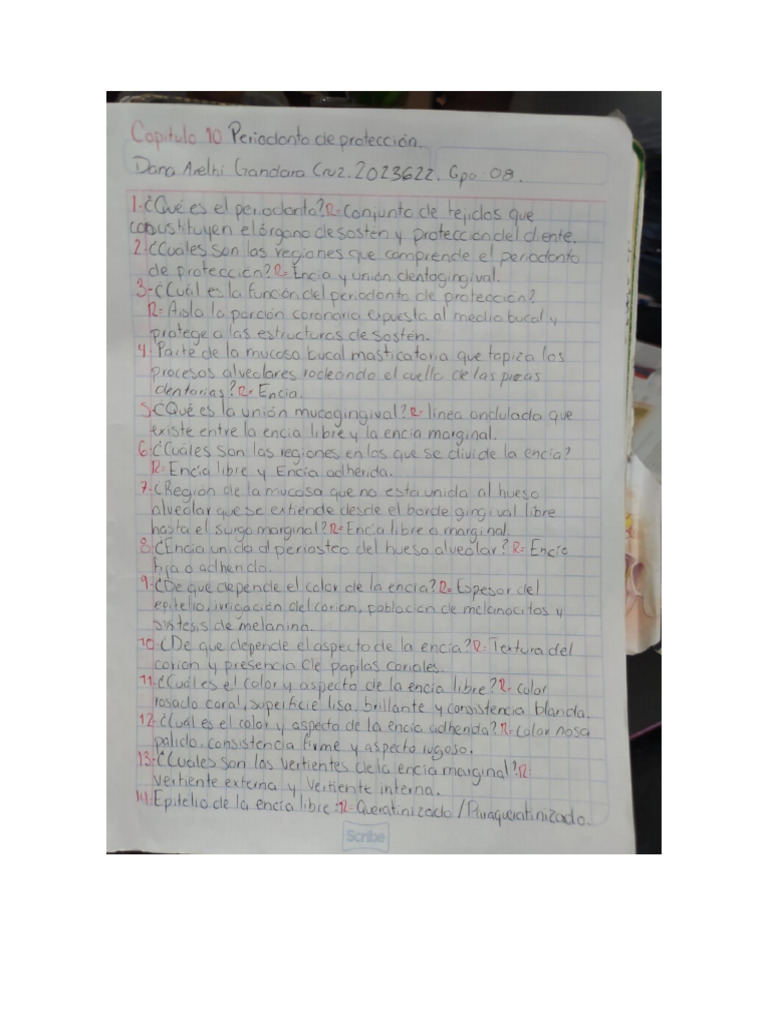 Capitulo 10 Periodonto de protección.
Dana Arelhi Gandara Cruz. 2023622. Gpo: 08.
1-¿Qué es el periodonto? R= Conjunto de tejidos que
constituyen el órgano de sostén y protección del diente.
2-¿Cuales son las regiones que comprende el periodonto
de protección? R= Encia y unión dentogingival.
3-¿Cuál es la función del periodonto de protección?
R= Aisla la porción coronaria expuesta al medio bucal y
protege a las estructuras de sostén.
4- Parte de la mucosa bucal masticatoria que tapiza los
procesos alveolares rodeando el cuello de las piezas
dentarias? R= Encia.
5-¿Qué es la unión mucogingival? R= linea ondulada que
existe entre la encia libre y la encia marginal.
6-¿Cuáles son las regiones en las que se divide la encia?
R= Encia libre y Encia adherida.
7-¿Región de la mucosa que no esta unida al hueso
alveolar que se extiende desde el borde gingival libre
hasta el surgo marginal? R= Encia libre o marginal.
8-¿Encia unida al periosteo del hueso alveolar? R= Encia
fija o adherida.
9-¿De que depende el color de la encia? R= Espesor del
epitelio, irrigación del corion, población de melanocitos y
síntesis de melanina.
10-¿De que depende el aspecto de la encia? R= Textura del
corion y presencia de papilas coriales.
11-¿Cuál es el color y aspecto de la encia libre? R= color
rosado coral, superficie lisa, brillante y consistencia blanda.
12-¿Cuál es el color y aspecto de la encia adherida? R= color rosa
palido, consistencia firme y aspecto rugoso.
13-¿Cuales son las vertientes de la encia marginal? R=
Vertiente externa y Vertiente interna.
14- Epitelio de la encia libre: R= Queratinizado / Paraqueratinizado.
Scribe